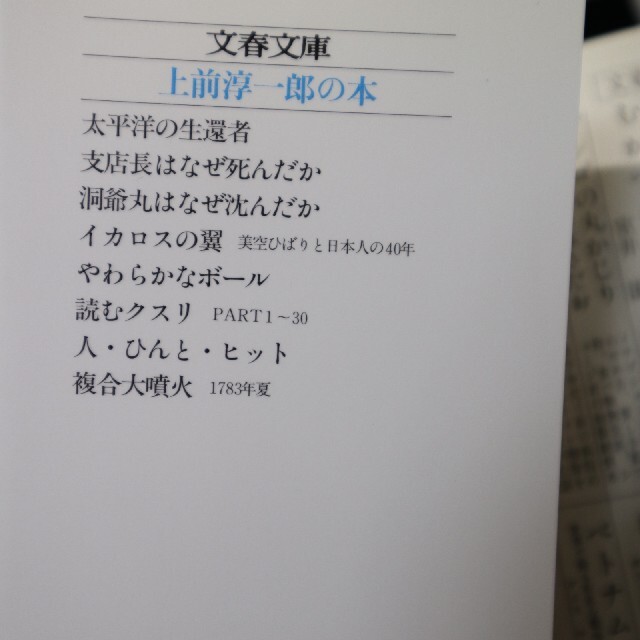 文春文庫
上前淳一郎の本
太平洋の生還者
支店長はなぜ死んだか
洞爺丸はなぜ沈んだか
イカロスの翼 美空ひばりと日本人の40年
やわらかなボール
読むクスリ PART1〜30
人・ひんと・ヒット
複合大噴火 1783年夏